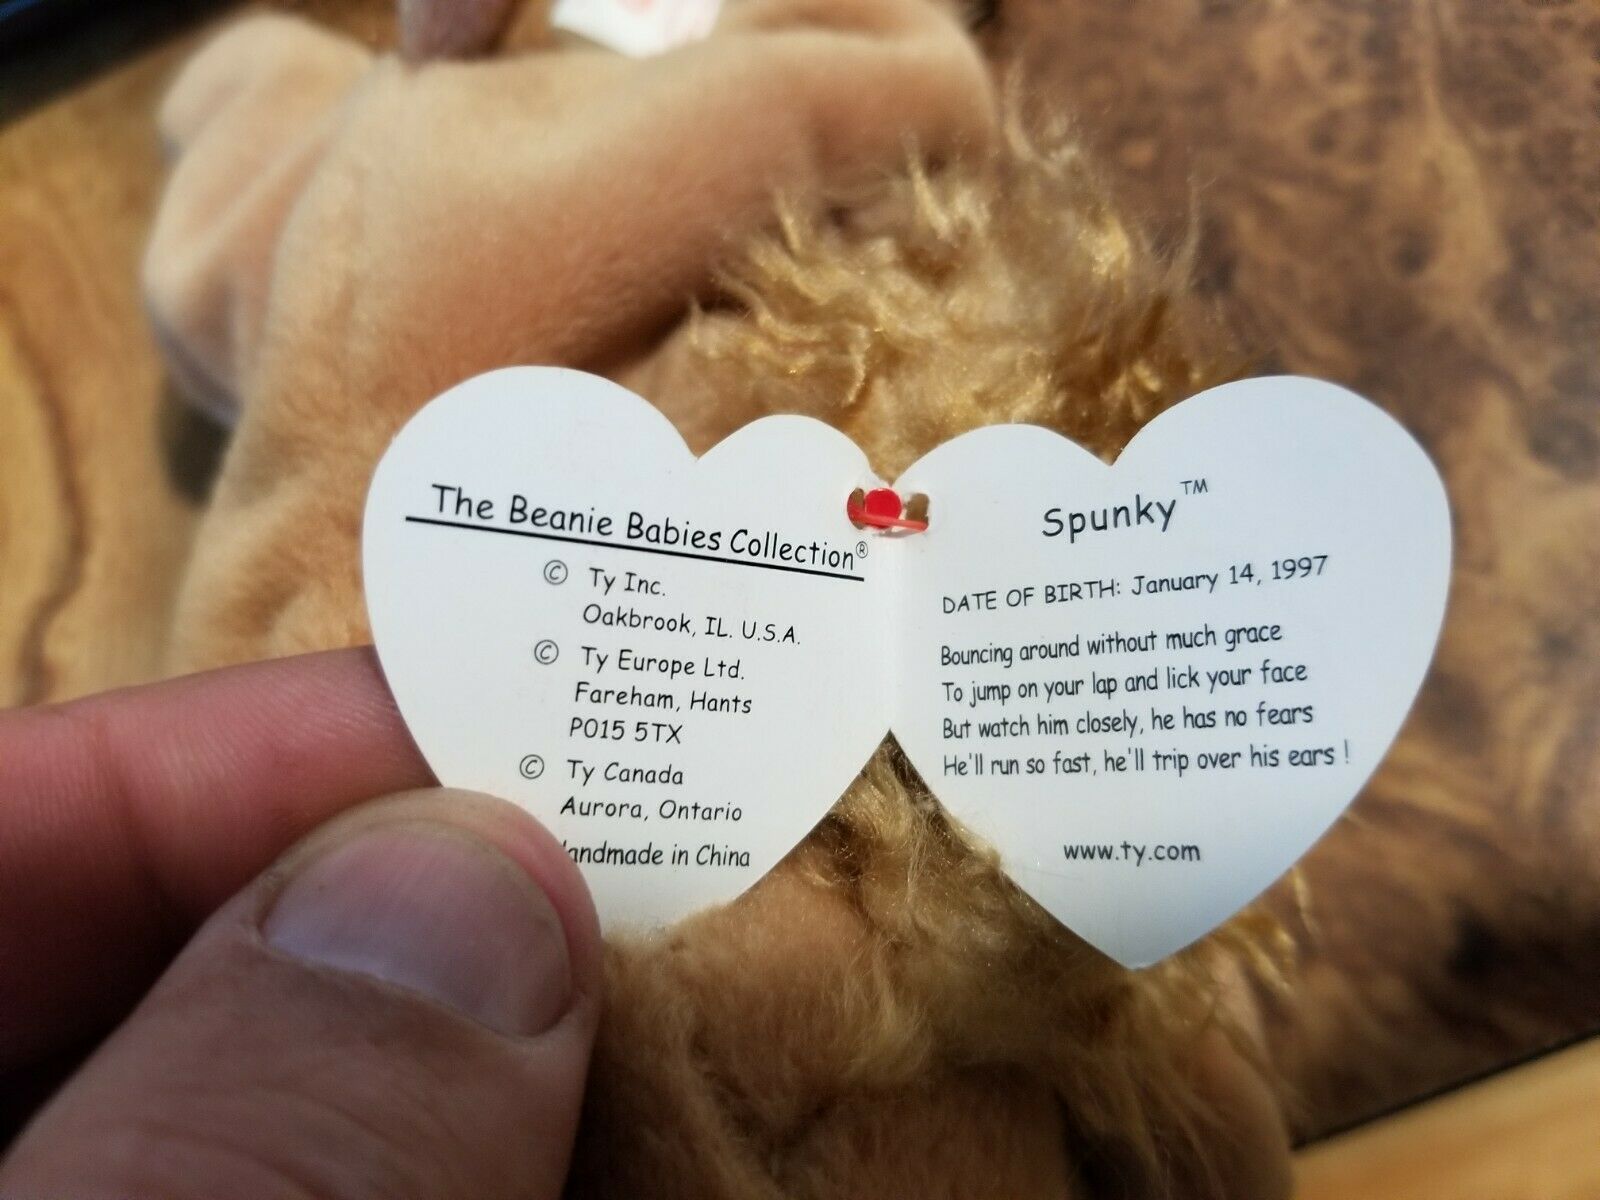 The Beanie Babies Collection®
© Ty Inc.
Oakbrook, IL. U.S.A.
© Ty Europe Ltd.
Fareham, Hants
PO15 5TX
© Ty Canada
Aurora, Ontario
andmade in China
Spunky™
DATE OF BIRTH: January 14, 1997
Bouncing around without much grace
To jump on your lap and lick your face
But watch him closely, he has no fears
He'll run so fast, he'll trip over his ears !
www.ty.com